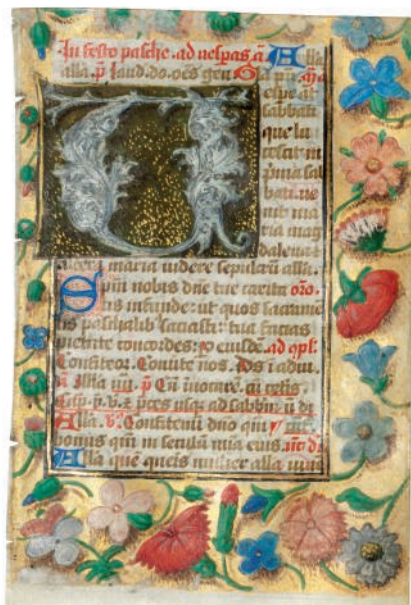 In festo pasche. ad uespas ā Alla
alla. p̄ laud. do. oēs gen
U espe āt
sabbati
que lu
cescit in
p̄ma sab
bati. ue
nit ma
ria mag
dalene et
altera maria uidere sepulcrū alla.
Spm nobis dne tue carita oro.
tis infunde: ut quos sacramē
tis paschalib saciasti: tua facias
pietate concordes: p eiusdē. ad cpl.
Confiteor. Conūte nos. Ds i adiut.
ā Alla iiii. p̄ Cū inuocarē. cū
usq ad sabbm
Alla. V. Confitemi dno qm
bonus qm in seculū mia eius.
Alla quē queris mulier alla